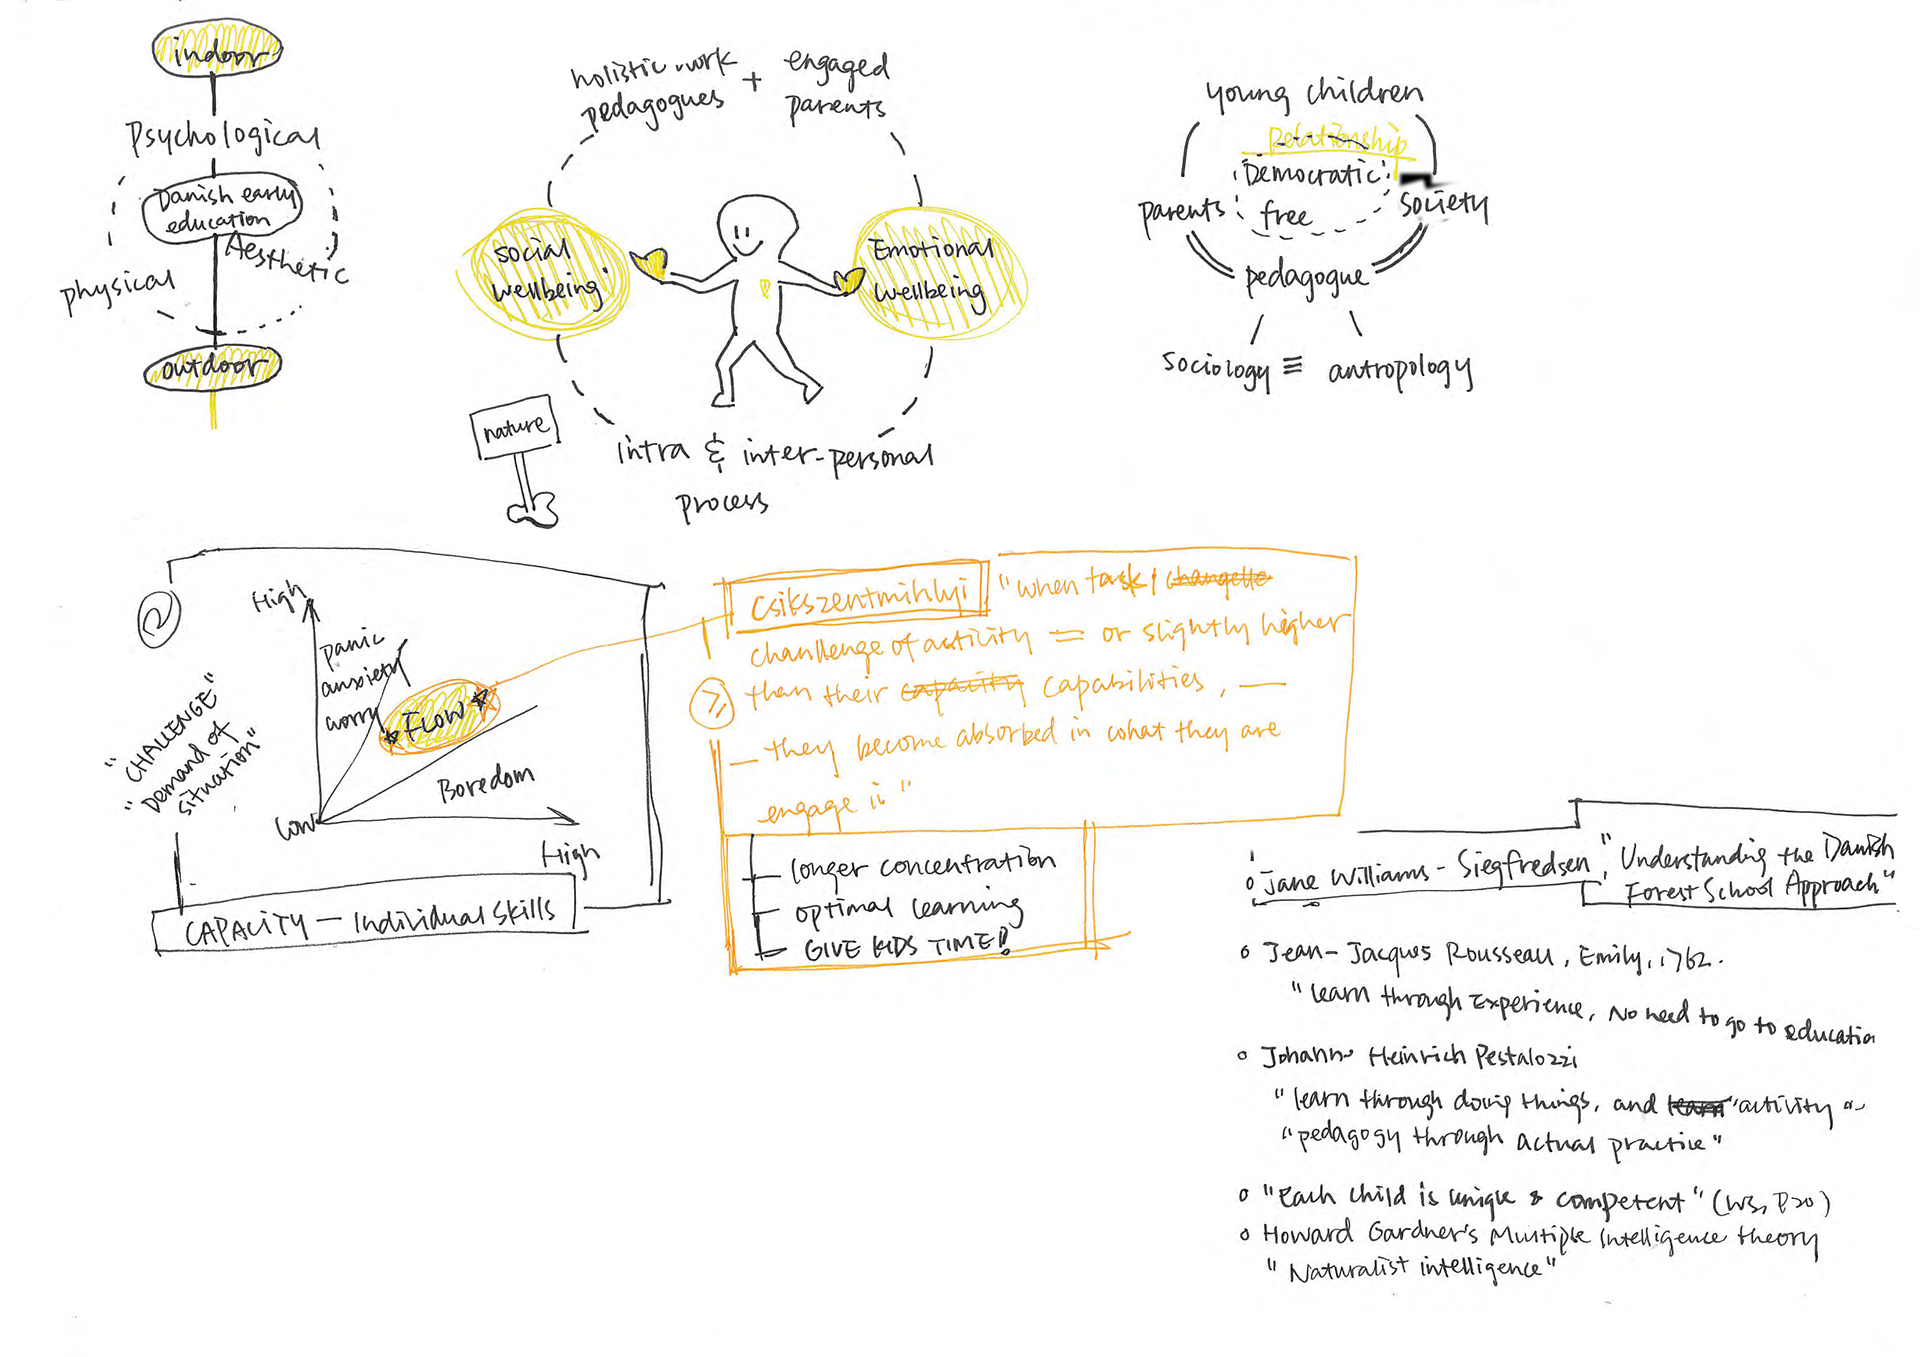 indoor
Psychological
Danish early
education
Aesthetic
physical
outdoor
holistic work
pedagogues
+
engaged
parents
social
wellbeing
Emotional
wellbeing
nature
intra & inter-personal
process
young children
Relationship
Democratic
free
parents
society
pedagogue
sociology ≡ antropology
High
panic
anxiety
worry
FLOW
Boredom
Low
High
"CHALLENGE"
"Demand of
situation"
CAPACITY — Individual Skills
Csikszentmihlyi
"when task/
challenge of activity = or slightly higher
than their capacity capabilities, —
— they become absorbed in what they are
engage in"
longer concentration
optimal learning
GIVE KIDS TIME!
Jane Williams - Siegfredsen, "Understanding the Danish
Forest School Approach"
Jean-Jacques Rousseau, Emily, 1762.
"learn through Experience, No need to go to education
Johann Heinrich Pestalozzi
"learn through doing things, and learn activity"
"pedagogy through actual practice"
"Each child is unique & competent" (WS, P20)
Howard Gardner's Multiple Intelligence theory
"Naturalist intelligence"